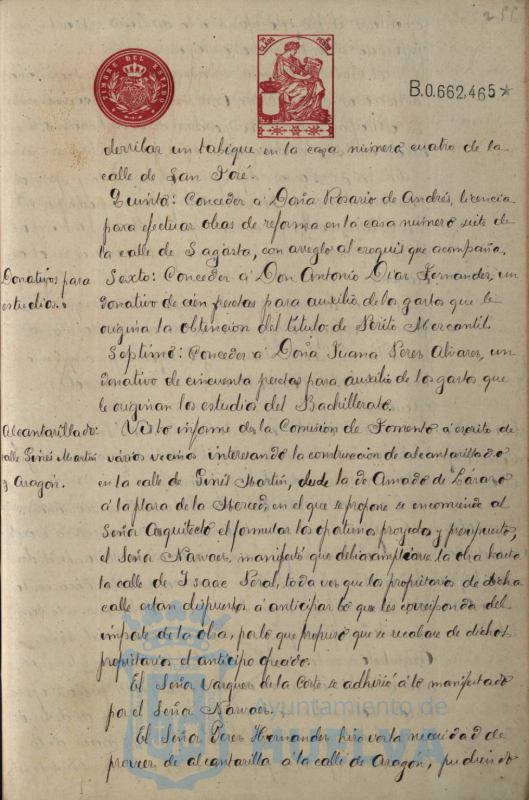 255
TIMBRE DEL ESTADO
CLASE
B.0.662.465*
derribar un tabique en la casa número cuatro de la
calle de San José.
Quinto: Conceder á Doña Rosario de Andrés, licencia
para efectuar obras de reforma en la casa número siete de
la calle de Sagasta, con arreglo al croquis que acompaña.
Donativos para
estudios.
Sexto: Conceder á Don Antonio Diaz Fernandez, un
donativo de cien pesetas para auxilio de los gastos que le
origina la obtencion del título de Perito Mercantil.
Septimo: Conceder á Doña Juana Perez Alvarez, un
donativo de cincuenta pesetas para auxilio de los gastos que
le originan los estudios del Bachillerato.
Alcantarillado:
calle Ginés Martin
y Aragon.
Visto informe de la Comision de Fomento á escrito de
varios vecinos interesando la construccion de alcantarillado
en la calle de Ginés Martín, desde la de Amado de Lázaro
á la plaza de la Merced, en el que se propone se encomiende al
Señor Arquitecto el formular los oportunos proyectos y presupuesto,
el Señor Narvaez, manifestó que debia ampliarse la obra hasta
la calle de Isaac Peral, toda vez que los propietarios de dicha
calle estan dispuestos á anticipar lo que les corresponda del
importe de la obra, por lo que propuso que se recabase de dichos
propietarios el anticipo ofrecido.
El Señor Vazquez de la Corte se adhirió á lo manifestado
por el Señor Narvaez.
El Señor Perez Hernandez hizo ver la necesidad de
proveer de alcantarilla á la calle de Aragon, pudiendo
Ayuntamiento de
HUELVA